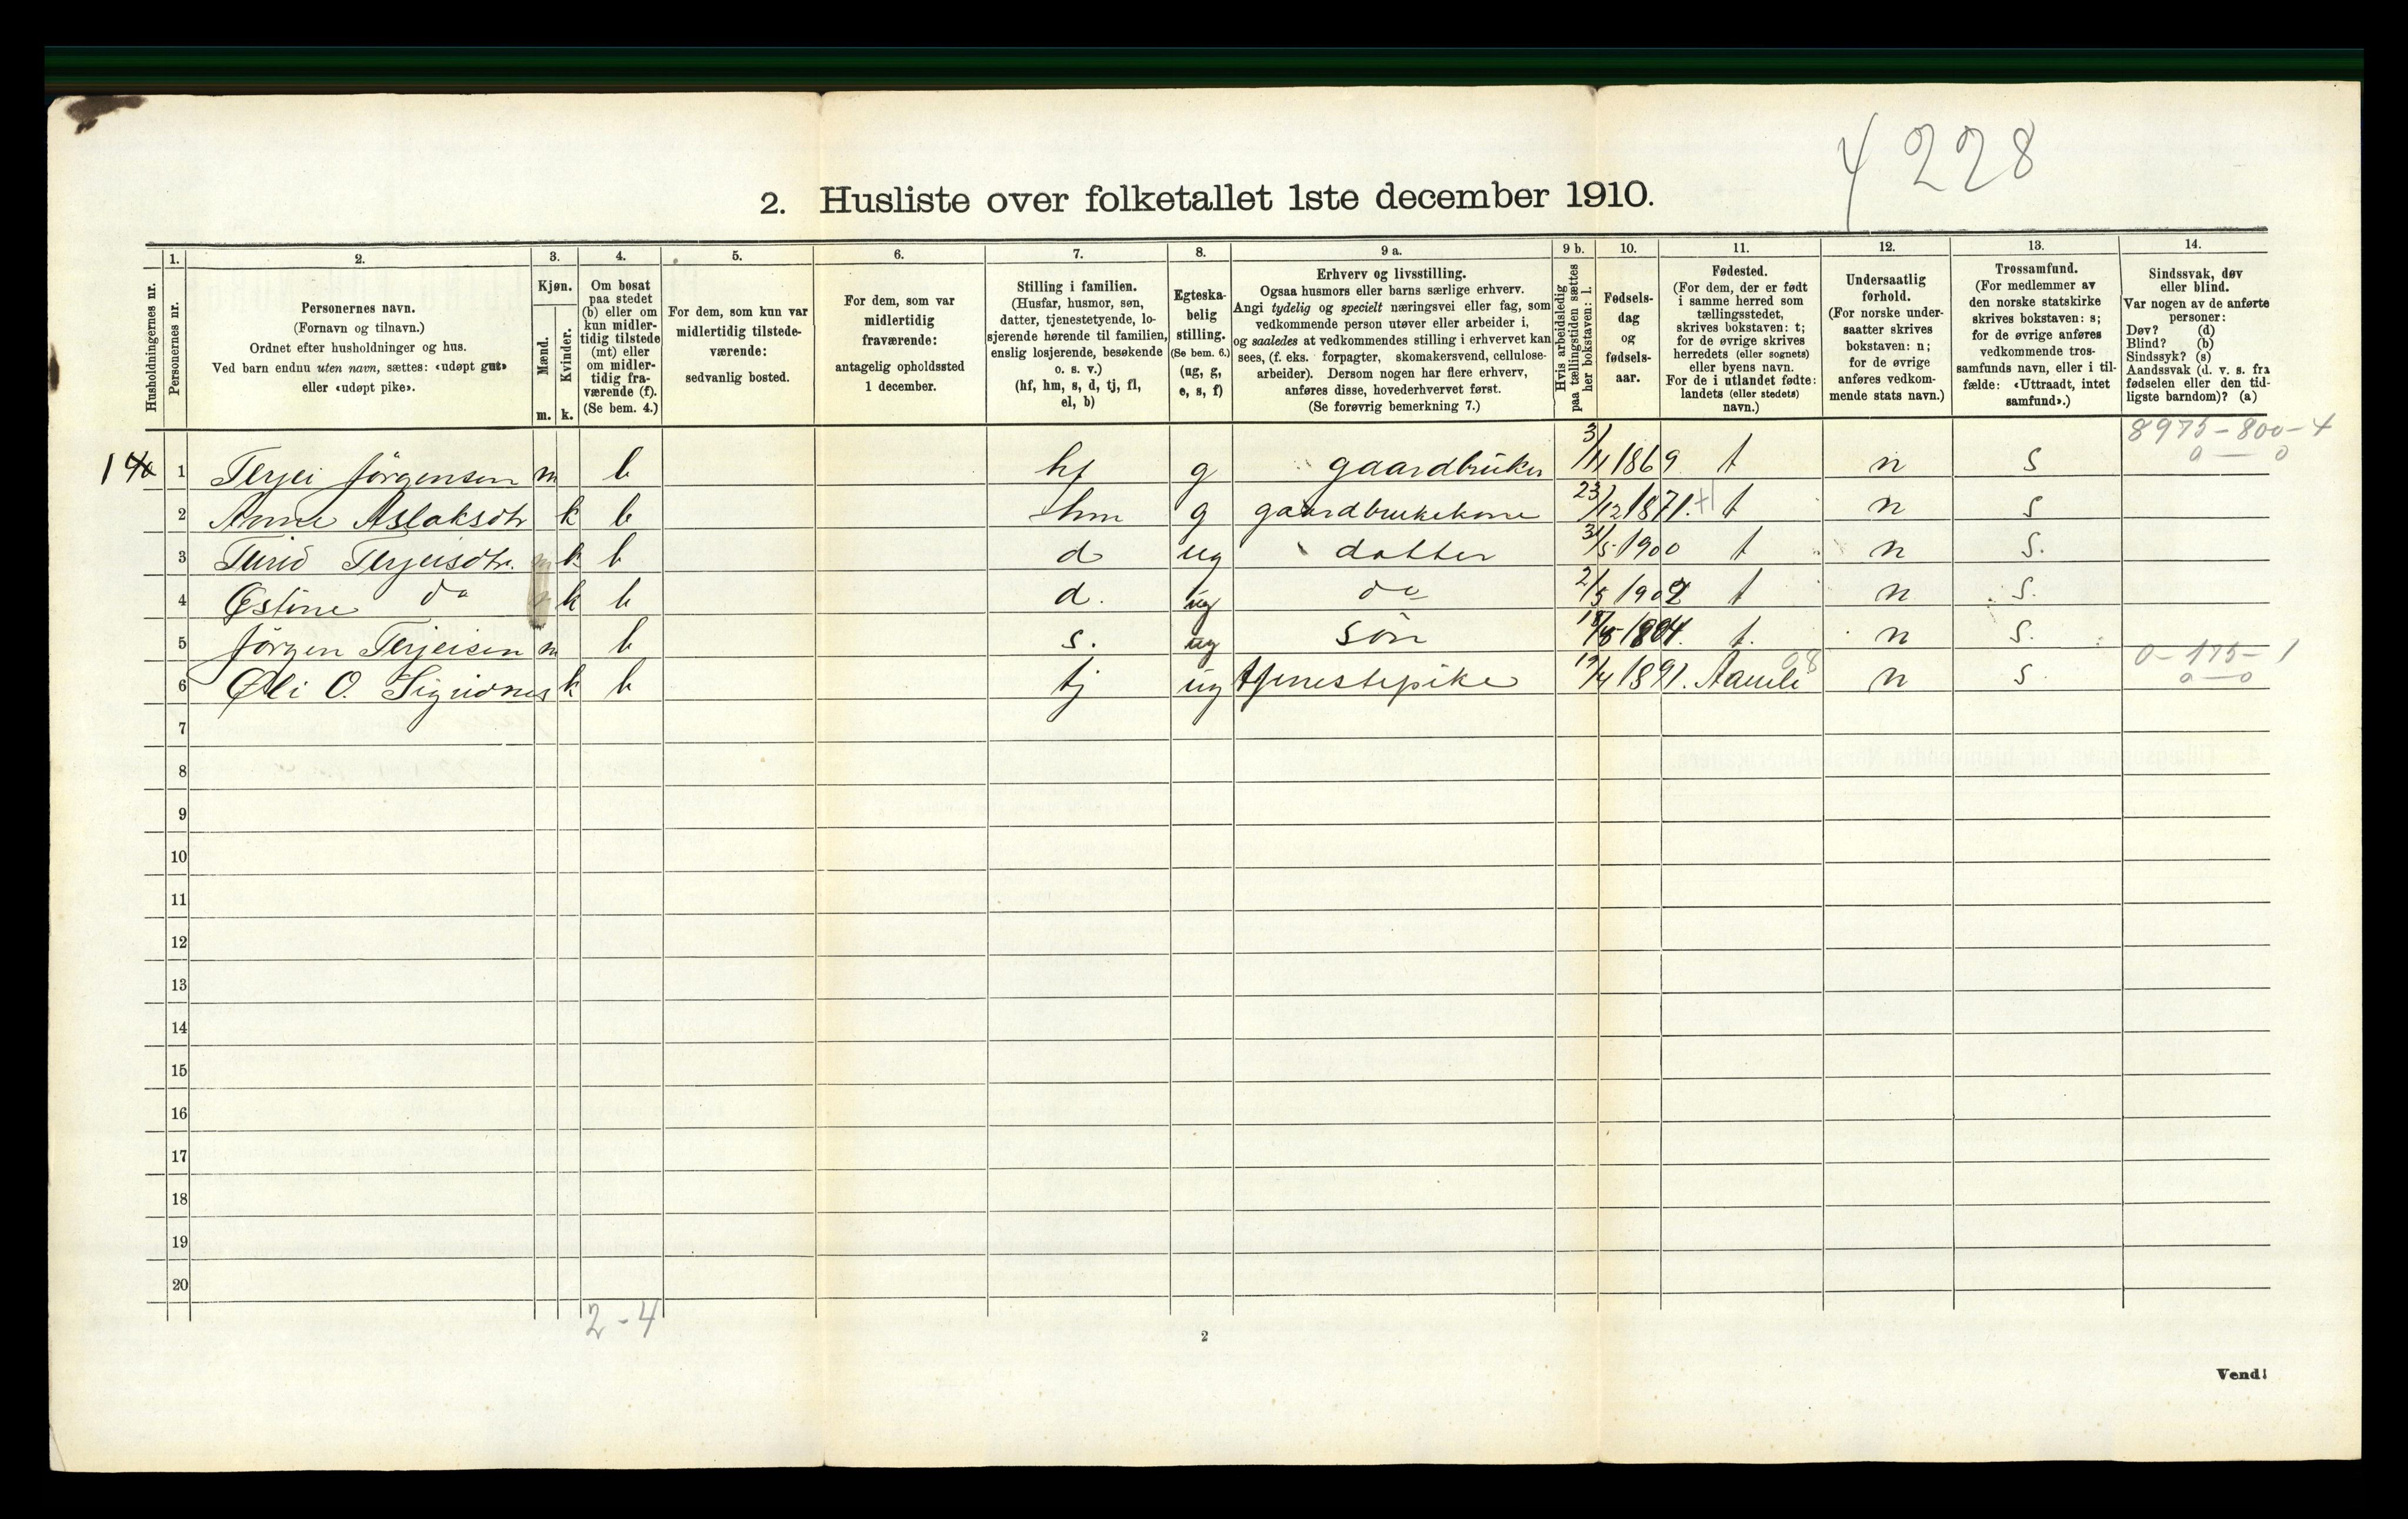 4 228
2. Husliste over folketallet 1ste december 1910.
1. 2. 3. 4. 5. 6. 7. 8. 9 a. 9 b. 10. 11. 12. 13. 14.
Husholdningernes nr.
Personernes nr.
Personernes navn.
(Fornavn og tilnavn.)
Ordnet efter husholdninger og hus.
Ved barn endnu uten navn, sættes: «udøpt gut»
eller «udøpt pike».
Kjøn.
Mænd.
Kvinder.
m. k.
Om bosat
paa stedet
(b) eller om
kun midler-
tidig tilstede
(mt) eller
om midler-
tidig fra-
værende (f).
(Se bem. 4.)
For dem, som kun var
midlertidig tilstede-
værende:
sedvanlig bosted.
For dem, som var
midlertidig
fraværende:
antagelig opholdssted
1 december.
Stilling i familien.
(Husfar, husmor, søn,
datter, tjenestetyende, lo-
sjerende hørende til familien,
enslig losjerende, besøkende
o. s. v.)
(hf, hm, s, d, tj, fl,
el, b)
Egteska-
belig
stilling.
(Se bem. 6.)
(ug, g,
e, s, f)
Erhverv og livsstilling.
Ogsaa husmors eller barns særlige erhverv.
Angi tydelig og specielt næringsvei eller fag, som
vedkommende person utøver eller arbeider i,
og saaledes at vedkommendes stilling i erhvervet kan
sees, (f. eks. forpagter, skomakersvend, cellulose-
arbeider). Dersom nogen har flere erhverv,
anføres disse, hovederhvervet først.
(Se forøvrig bemerkning 7.)
Hvis arbeidsledig
paa tællingstiden sættes
her bokstaven: l.
Fødsels-
dag
og
fødsels-
aar.
Fødested.
(For dem, der er født
i samme herred som
tællingsstedet,
skrives bokstaven: t;
for de øvrige skrives
herredets (eller sognets)
eller byens navn.
For de i utlandet fødte:
landets (eller stedets)
navn.)
Undersaatlig
forhold.
(For norske under-
saatter skrives
bokstaven: n;
for de øvrige
anføres vedkom-
mende stats navn.)
Trossamfund.
(For medlemmer av
den norske statskirke
skrives bokstaven: s;
for de øvrige anføres
vedkommende tros-
samfunds navn, eller i til-
fælde: «Uttraadt, intet
samfund».)
Sindssvak, døv
eller blind.
Var nogen av de anførte
personer:
Døv? (d)
Blind? (b)
Sindssyk? (s)
Aandssvak (d. v. s. fra
fødselen eller den tid-
ligste barndom)? (a)
8975-800-4
0 — 0
1 1 Terjei Jörgensen m b hf g gaardbruker 3/11 1869 t n s
2 Anne Aslaksdtr k b hm g gaardbrukekone 23/12 1871. t n s
3 Turid Terjeisdtr. k b d ug datter 31/5 1900 t n s.
4 Østine do k b d. ug do 2/5 1902 t n s.
5 Jörgen Terjeisen m b s. ug sön 1904. t. n s.
0-175-1
6 Øli O. Sigridnes k b tj ug tjenestepike 19/4 1891. Aamli 98 n s.
0 — 0
7
8
9
10
11
12
13
14
15
16
17
18
19
20
2-4
2
Vend!